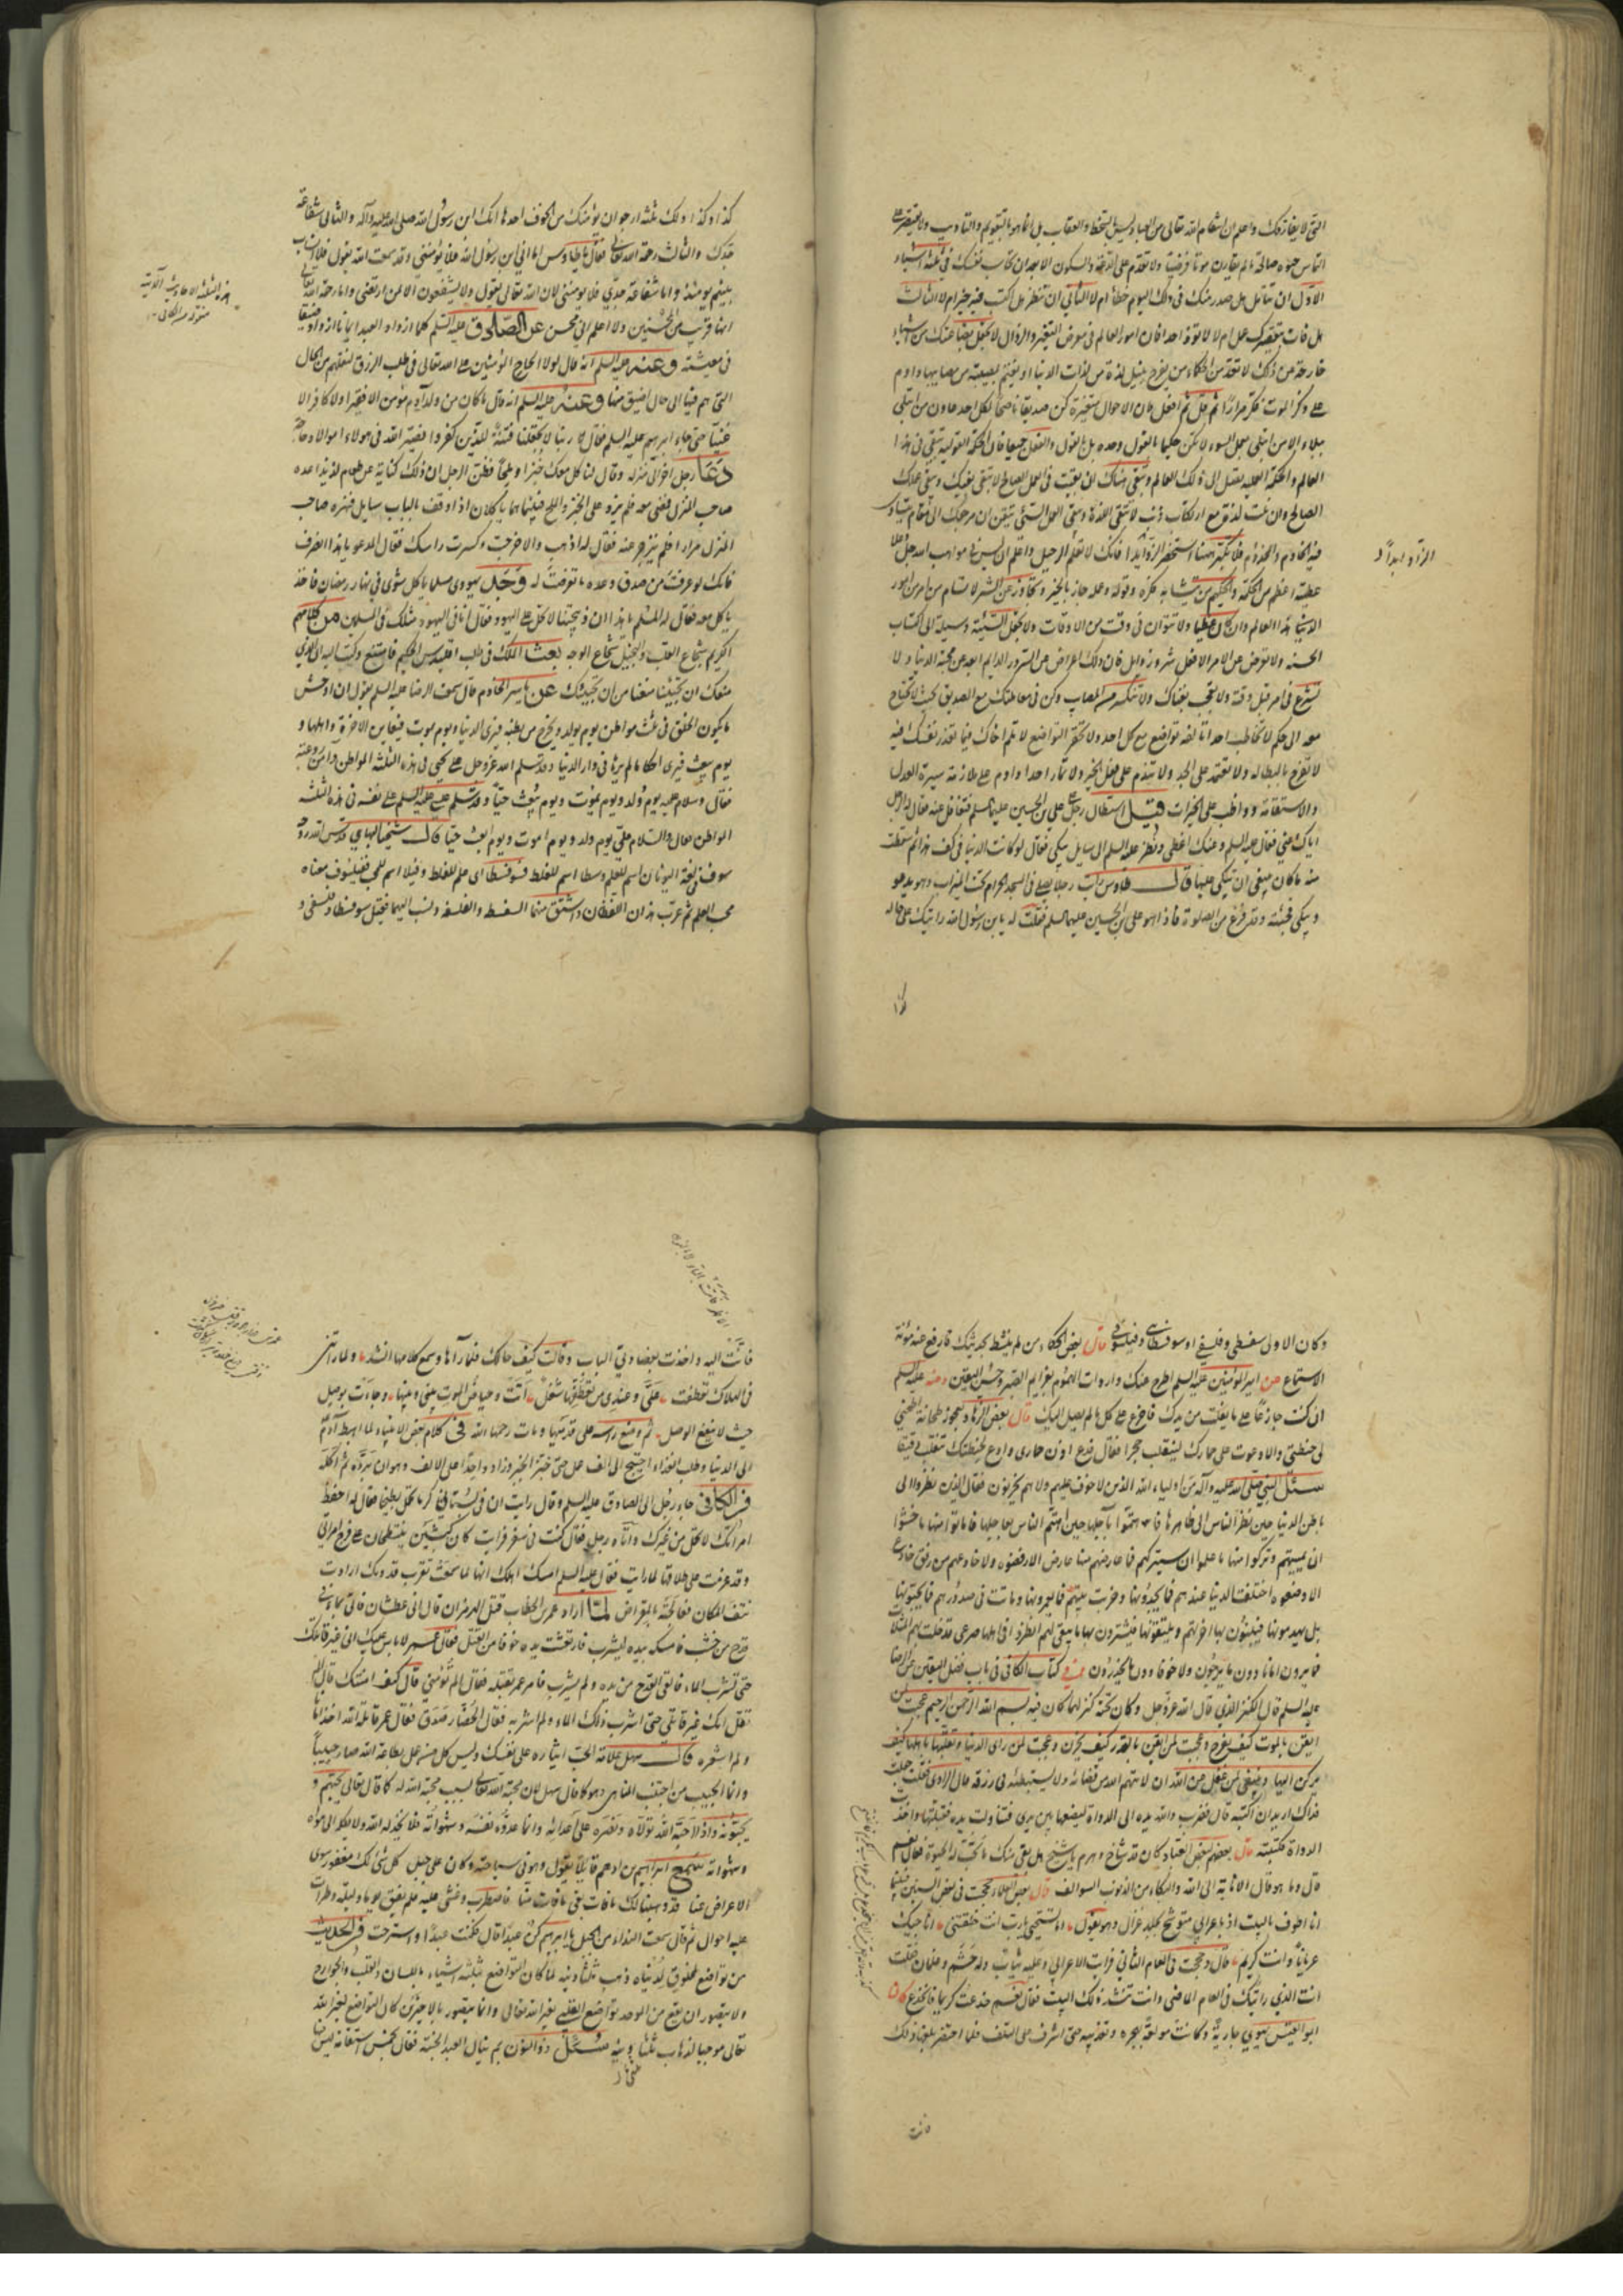 التي لا يفارقك واعلم ان انتقام الله تعالى من العباد ليس بالسخط والعقاب بل انما هو التقويم والتأديب
الناس حيوة صالحة ما لم يقارن موتا مرضيا ولا تقدم على الدعة والسكون الا بعد ان تحاسب نفسك في ثلثة اشياء
الاول ان تتأمل هل صدر منك في ذلك اليوم خطأ ام لا الثاني ان تنظر هل اكتسبت فيه خيرا ام لا الثالث
هل فات بتقصيرك عمل ام لا لا تؤذ احدا فان امور العالم في معرض التغير والزوال لا تجعل بضاعتك من اشياء
خارجة عن ذلك لا تعد من الحكماء من يفرح بنيل لذة من لذات الدنيا او يغتم بمصيبة من مصايبها وادم
على ذكر الموت فكر مرارا ثم قل ثم افعل فان الاحوال متغيرة كن صديقا ناصحا لكل احد عاون من ابتلي
ببلاء الا من ابتلي بعمل السوء لا تكن حكيما بالقول وحده بل بالقول والفعل جميعا فان الحكمة القولية تبقى في هذا
العالم والحكمة العملية تصل الى ذلك العالم وتبقى هناك ان تعبت في العمل الصالح لا يبقى تعبك ويبقى عملك
الصالح وان نلت لذة مع ارتكاب ذنب لا تبقى اللذة ويبقى العمل السيئ تيقن ان مرجعك الى مقام يتساوى
فيه الخادم والمخدوم فلا تتكبر هيهنا استحضر الزاد ابدا فانك لا تعلم الرحيل واعلم ان ليس في مواهب الله جل وعلا
الزاد ابدا
عطية اعظم من الحكمة والحكيم من يتشابه فكره وقوله وعمله جاز بالخير وتجاوز عن الشر لا تسأم من امر من امور
الدنيا هذا العالم وان كان عظيما ولا تتوان في وقت من الاوقات ولا تجعل السيئة وسيلة الى اكتساب
الحسنة ولا تعرض عن الامر الافضل لسرور زايل فان ذلك اعراض عن السرور الدايم ابعد عن محبة الدنيا ولا
تشرع في امر قبل وقته ولا تعجب بغناك ولا تنكسر من المصايب وكن في معاملتك مع الصديق بحيث لا تحتاج
معه الى حكم لا تخاطب احدا بالسفه تواضع مع كل احد ولا تحقر المتواضع لا تلم اخاك فيما تعذر نفسك فيه
لا تفرح بالبطالة ولا تعتمد على الجد ولا تندم على فعل الخير ولا تمار احدا وادم على ملازمة سيرة العدل
والاستقامة وواظب على الخيرات قيل استطال رجل على علي بن الحسين عليهما السلم فتغافل عنه فقال له الرجل
اياك اعني فقال عليه السلم وعنك اغضي ونظر عليه السلم الى سايل يبكي فقال لو كانت الدنيا في كف هذا ثم سقطت
منه ما كان ينبغي ان يبكي عليها قال طاوس رأيت رجلا يصلي في المسجد الحرام تحت الميزاب وهو يدعو
ويبكي فجئته وقد فرغ من الصلوة فاذا هو علي بن الحسين عليهما السلم فقلت له يا بن رسول الله رأيتك على حالة
كذا
كذا وكذا ولك ثلثة ارجو ان تؤمنك من الخوف احدها انك ابن رسول الله صلى الله عليه وآله والثاني شفاعة
جدك والثالث رحمة الله تعالى فقال يا طاوس اما اني ابن رسول الله فلا يؤمنني وقد سمعت الله يقول فلا انساب
بينهم يومئذ واما شفاعة جدي فلا تؤمنني لان الله تعالى يقول ولا يشفعون الا لمن ارتضى واما رحمة الله
انها قريب من المحسنين ولا اعلم اني محسن عن الصادق عليه السلم كلما ازداد العبد ايمانا ازداد ضيقا
في معيشته وعنه عليه السلم انه قال لولا الحاح المؤمنين على الله تعالى في طلب الرزق لنقلهم من الحال
التي هم فيها الى حال اضيق منها وعنه عليه السلم انه قال ما كان من ولد آدم مؤمن الا فقيرا ولا كافر الا
غنيا حتى جاء ابرهيم عليه السلم فقال ربنا لا تجعلنا فتنة للذين كفروا فصير الله في هؤلاء اموالا وحاجة
دعا رجل آخر الى منزله وقال لنأكل معك خبزا وملحا فظن الرجل ان ذلك كناية عن طعام لذيذ اعده
صاحب المنزل فمضى معه فلم يزد على الخبز والملح فبينما هما يأكلان اذ وقف بالباب سايل فنهره صاحب
المنزل مرارا فلم ينزجر عنه فقال له اذهب والا خرجت وكسرت رأسك فقال المدعو يا هذا انصرف
فانك لو عرفت من صدق وعده ما تعرضت له وجد يهودي مسلما يأكل شوى في نهار رمضان فاخذ
يأكل معه فقال له المسلم يا هذا ان ذبيحتنا لا تحل على اليهود فقال انا في اليهود مثلك في المسلمين من كلامهم
الكريم شجاع القلب والبخيل شجاع الوجه بعث الملك في طلب اقليدس الحكيم فامتنع وكتب اليه ان الذي
منعك ان تجيئنا منعنا من ان نجيئك عن ياسر الخادم قال سمعت الرضا عليه السلم يقول ان اوحش
ما يكون الخلق في ثلث مواطن يوم يولد ويخرج من بطنه فيرى الدنيا ويوم يموت فيعاين الاخرة واهلها و
يوم يبعث فيرى احكاما لم يرها في دار الدنيا وقد سلم الله عز وجل على يحيى في هذه الثلثة المواطن وآمن روعته
فقال وسلام عليه يوم ولد ويوم يموت ويوم يبعث حيا وقد سلم عيسى عليه السلم على نفسه في هذه الثلثة
المواطن فقال والسلام علي يوم ولدت ويوم اموت ويوم ابعث حيا قال شيخنا البهائي قدس الله روحه
سوف في لغة اليونان اسم للعلم وسطا اسم للغلط فسوفسطا اي علم الغلط وفيلا اسم للمحب ففيلسوف معناه
محب العلم ثم عرب هذان اللفظان واشتق منهما السفسطة والفلسفة ونسب اليهما فقيل سوفسطائي وفلسفي و
وكان الاولى سفسطي وفلسفي او سوفسطائي وفيلسوفي قال بعض الحكماء من لم ينشط لحديثك فارفع عنه مؤنة
الاستماع عن امير المؤمنين عليه السلم اطرح عنك واردات الهموم بعزايم الصبر وحسن اليقين وعنه عليه السلم
ان كنت جازعا على ما يفلت من يدك فاجزع على كل ما لم يصل اليك قال بعض الزهاد لعجوز طحانة اطحني
لي حنطتي والا دعوت على حمارك لينقلب حجرا فقال فدع اذن حماري وادع لحنطتك تنقلب دقيقا
سئل النبي صلى الله عليه وآله من اولياء الله الذين لا خوف عليهم ولا هم يحزنون فقال الذين نظروا الى
باطن الدنيا حين نظر الناس الى ظاهرها فاهتموا بآجلها حين اهتم الناس بعاجلها فاماتوا منها ما خشوا
ان يميتهم وتركوا منها ما علموا ان سيتركهم فما عارضهم منها عارض الا رفضوه ولا خادعهم من رفعتها خادع
الا وضعوه اخلقت الدنيا عندهم فما يجددونها وخربت بينهم فما يعمرونها وماتت في صدورهم فما يحيونها
بل يهدمونها فيبنون بها آخرتهم ويبيعونها فيشترون بها ما يبقى لهم نظروا الى اهلها صرعى قد حلت بهم المثلات
فما يرون امانا دون ما يرجون ولا خوفا دون ما يحذرون في كتاب الكافي في باب فضل اليقين عن الرضا
عليه السلم قال الكنز الذي قال الله عز وجل وكان تحته كنز لهما كان فيه بسم الله الرحمن الرحيم عجبت لمن
ايقن بالموت كيف يفرح وعجبت لمن ايقن بالقدر كيف يحزن وعجبت لمن رأى الدنيا وتقلبها باهلها كيف
يركن اليها وينبغي لمن عقل عن الله ان لا يتهم الله في قضائه ولا يستبطئه في رزقه قال الراوي فقلت جعلت
فداك اريد ان اكتبه قال فضرب والله يده الى الدواة ليضعها بين يدي فتناولت يده فقبلتها واخذت
الدواة فكتبته قال بعضهم لبعض العباد وكان قد شاخ وهرم يا شيخ هل بقي منك ما تحب له الحيوة فقال نعم
قال وما هو قال الانابة الى الله والبكاء من الذنوب السوالف قال بعض العلماء حججت في بعض السنين فبينما
انا اطوف بالبيت اذ باعرابي متوشح بجلد غزال وهو يقول اما تستحيي يا رب انت خلقتني اناجيك
عريانا وانت كريم قال وحججت في العام الثاني فرأيت الاعرابي وعليه ثياب وله حشم وغلمان فقلت
انت الذي رأيتك في العام الماضي وانت تنشد ذلك البيت فقال نعم خدعت كريما فانخدع كان
ابو العيش يهوي جارية وكانت مولعة بهجره وتعذيبه حتى اشرف على التلف فلما احتضر بلغها ذلك
فاتت
فاتت اليه واخذت بعضادتي الباب وقالت كيف حالك فلما رآها وسمع كلامها انشد ولما رأتني
في الهلاك تعطفت علي وعندي من تعطفها شغل اتت وحياض الموت بيني وبينها وجادت بوصل
حيث لا ينفع الوصل ثم وضع رأسه على قدميها ومات رحمه الله في كلام بعض الانبياء لما اهبط آدم
الى الدنيا وطلب الغذاء احتيج الى الف عمل حتى خبز الخبز وزاد واحدا على الالف وهو ان تبرده ثم اكله
في الكافي جاء رجل الى الصادق عليه السلم وقال رأيت ان في بستاني كرما يحمل بطيخا فقال له احفظ
امرأتك لا تحمل من غيرك وأتاه رجل فقال كنت في سفر فرأيت كأن كبشين ينتطحان على فرج امرأتي
وقد عزمت على طلاقها لما رأيت فقال عليه السلم امسك اهلك انها لما سمعت بقرب قدومك ارادت
نتف المكان فعالجته بالمقراض لما اراد عمر بن الخطاب قتل الهرمزان قال اني عطشان فاتي بماء في
قدح من خشب فامسكه بيده ليشرب فارتعشت يده خوفا من القتل فقال عمر لا بأس عليك اني غير قاتلك
حتى تشرب الماء فالقى القدح من يده ولم يشرب فامر عمر بقتله فقال الم تؤمني قال كيف امنتك قال الم
تقل انك غير قاتلي حتى اشرب ذلك الماء ولم اشربه فقال الحضار صدق فقال عمر قاتله الله اخذ امانا
ولم اشعر به قال سهل علامة الحب ايثاره على نفسك وليس كل من عمل بطاعة الله صار حبيبا
وانما الحبيب من اجتنب المناهي وهو كما قال سهل لان محبة الله تعالى لسبب محبة الله له كما قال تعالى يحبهم و
يحبونه واذا احبه الله تولاه ونصره على اعدائه وانما عدوه نفسه وشهواته فلا يخذله الله ولا يكله الى هواه
وشهواته سمع ابراهيم بن ادهم قائلا يقول وهو في سياحته وكان على جبل كل شيء لك مغفور سوى
الاعراض عنا قد وهبنا لك ما فات بقي ما فات منا فاضطرب وغشي عليه فلم يفق يوما وليلة وطرأت
عليه احوال ثم قال سمعت النداء من الجبل يا ابرهيم كن عبدا قال فكنت عبدا واسترحت في الحديث
من تواضع لمخلوق لدنياه ذهب ثلثا دينه لما كان التواضع بثلثة اشياء باللسان والقلب والجوارح
ولا يتصور ان يقع من الموحد تواضع القلب لغير الله تعالى وانما يتصور بالاخيرين كان التواضع لغير الله
تعالى موجبا لذهاب ثلثا دينه سئل ذو النون بم ينال العبد الجنة فقال بخمس استقامة ليس